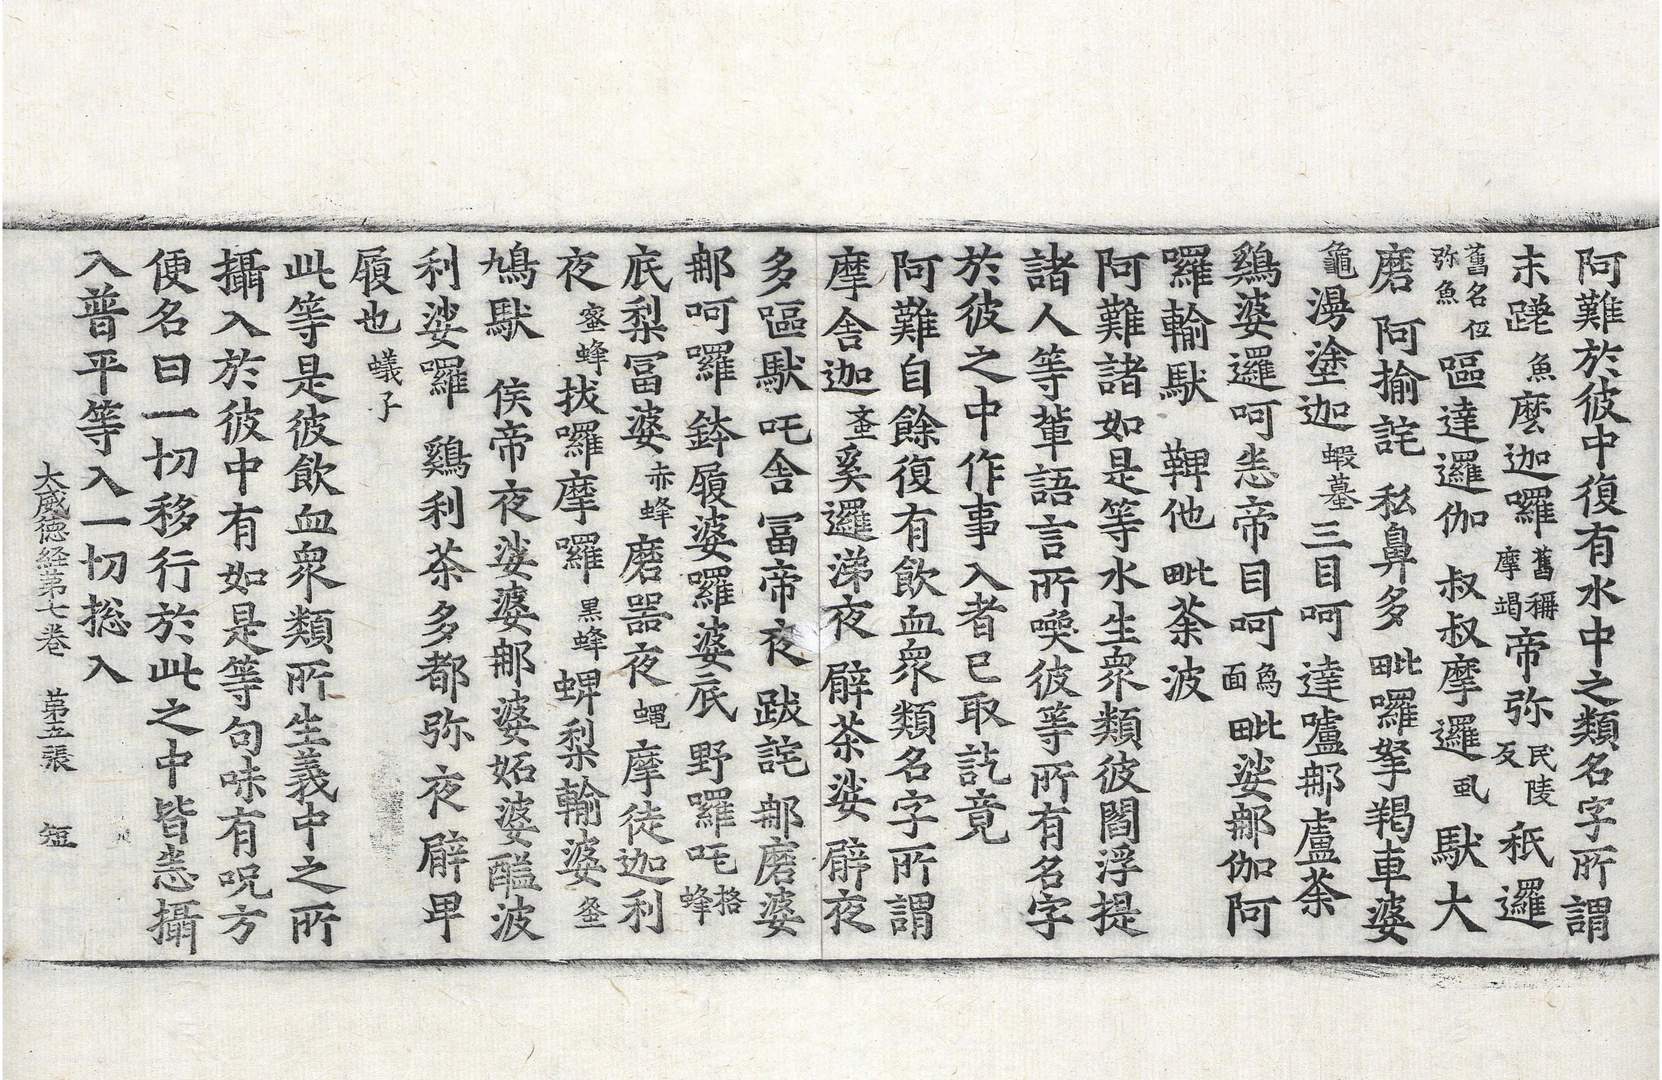 阿難於彼中復有水中之類名字所謂
末蹉魚麼迦囉舊稱摩竭帝弥民陵反秖邏
舊名伍弥魚嘔達邏伽叔叔摩邏虬馱大
磨阿揄詫私鼻多毗囉拏羯車婆
龜澷塗迦蝦蟇三目呵達嚧那盧荼
鷄婆邏呵恙帝目呵為面毗娑那伽阿
囉輸馱鞞他毗荼波
阿難諸如是等水生衆類彼閻浮提
諸人等輩語言所喚彼等所有名字
於彼之中作事入者已取訖竟
阿難自餘復有飲血衆類名字所謂
摩舍迦奚邏涕夜辟荼娑辟夜
多嘔馱吒舍冨帝夜跋詫那磨婆
那呵囉鉢履婆囉婆底野囉吒格蜂
底梨冨婆赤蜂磨噐夜蝿摩徒迦利
夜蜜蜂拔囉摩囉黒蜂蜱梨輸婆
鳩馱俟帝夜娑婆那婆妬婆醯波
利娑囉鷄利荼多都弥夜辟卑
履也蟻子
此等是彼飲血衆類所生義中之所
攝入於彼中有如是等句味有呪方
便名曰一切移行於此之中皆悉攝
入普平等入一切捴入
大威德経第七卷 第五張 短